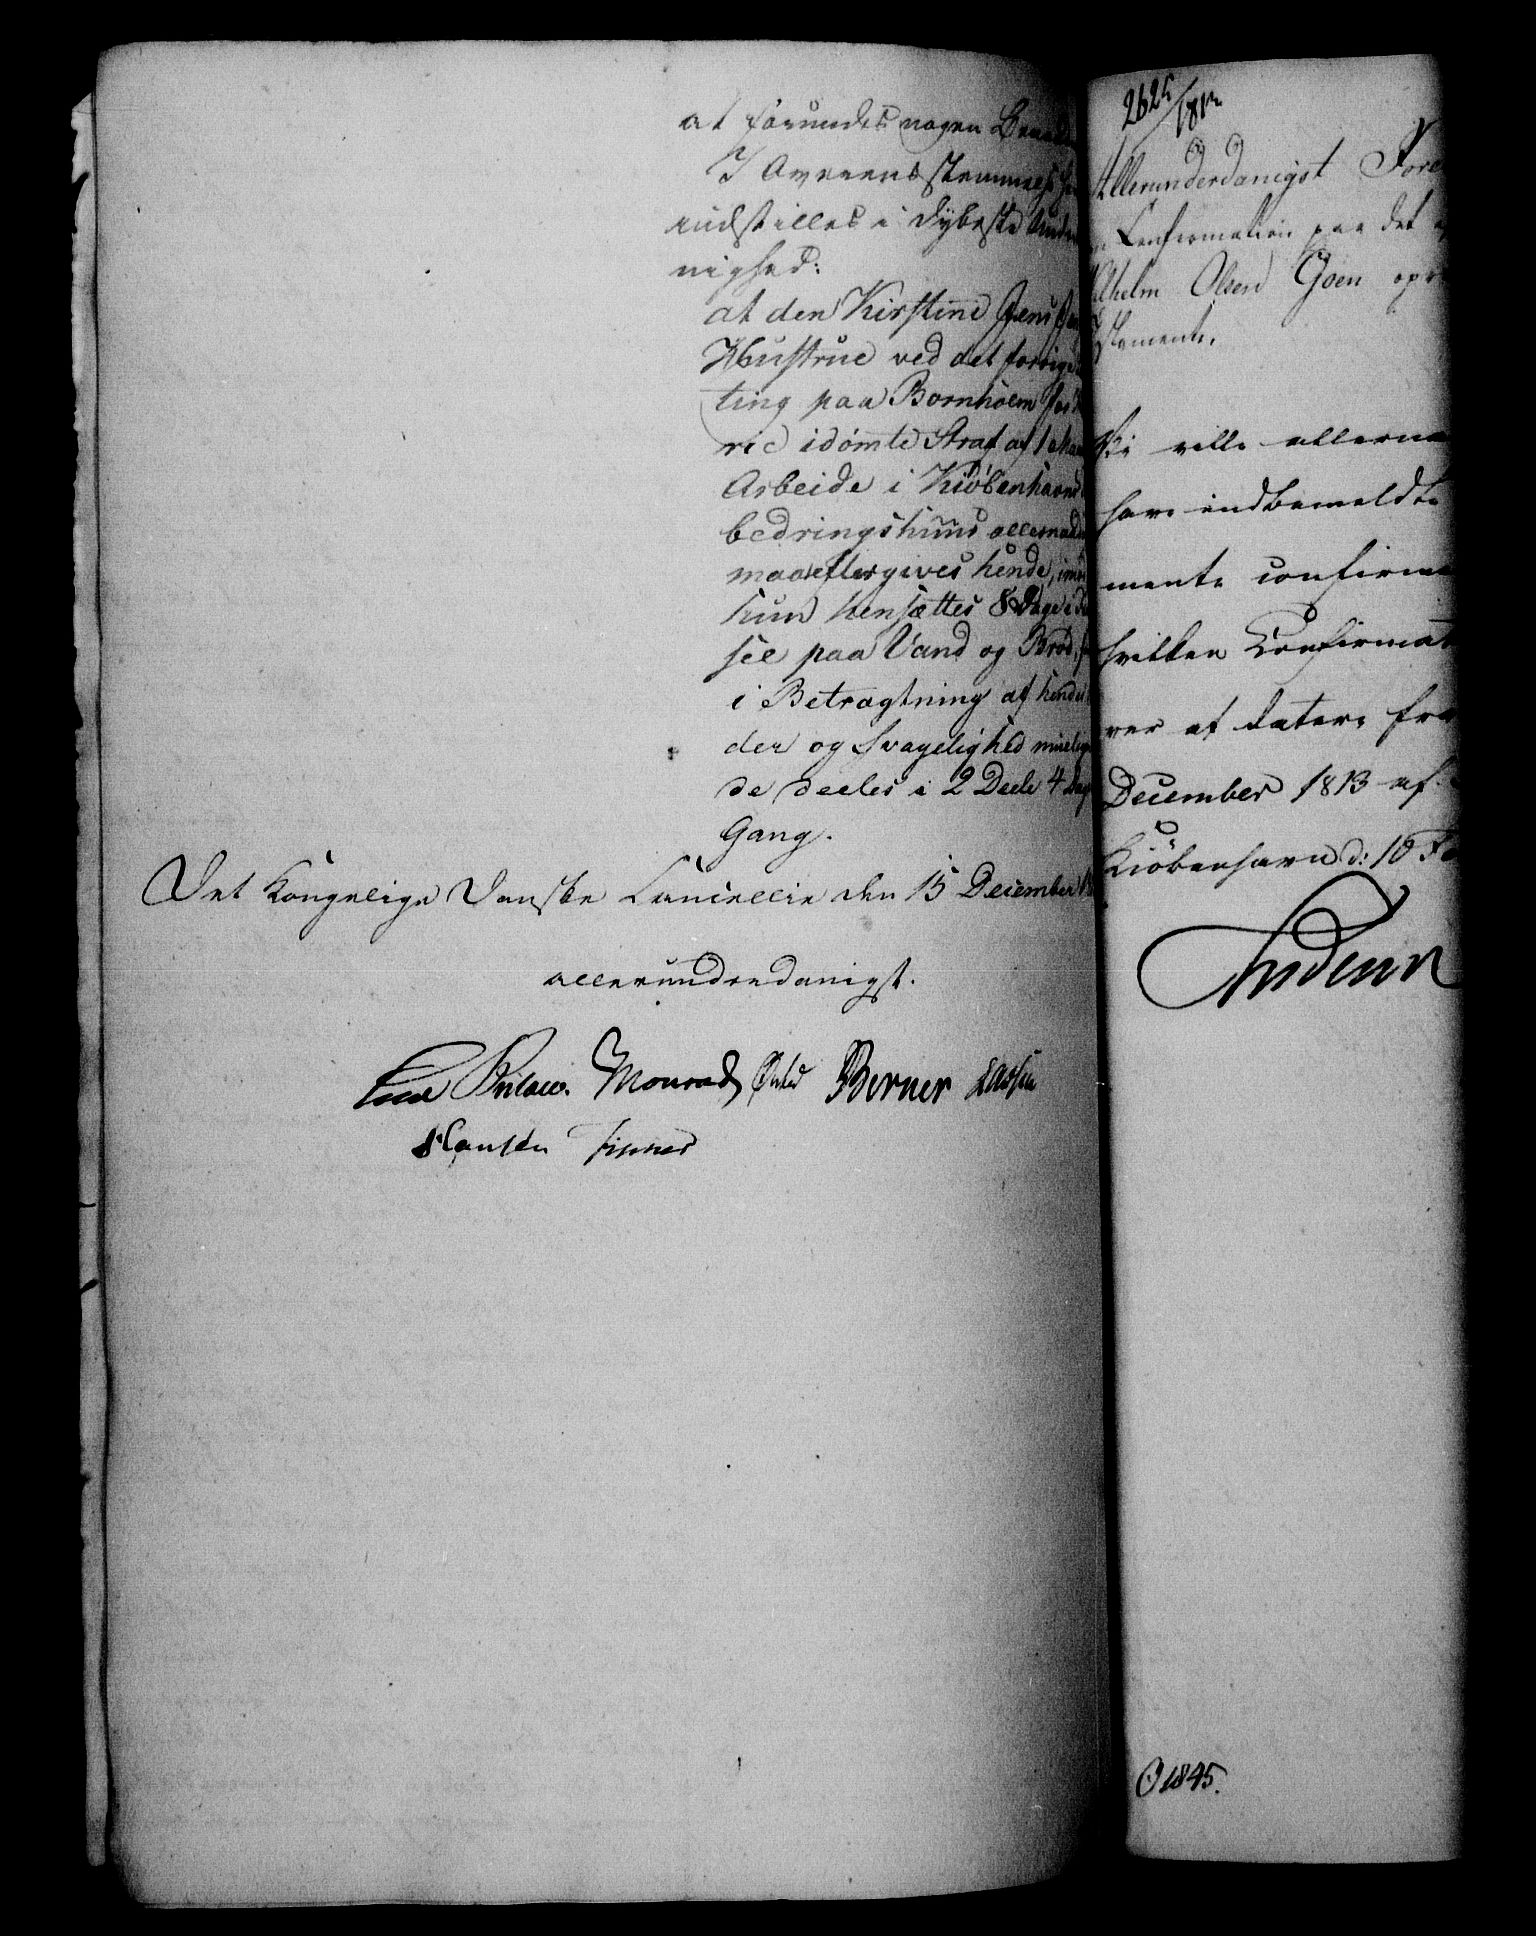 at forundes nogen
I Overensstemmelse
indstilles i dybeste
nighed:
at den Kirstine Jens
Hustrue ved det forrige
ting paa Bornholm for
rie idømte Straf af 1
Arbeide i Kiöbenhavns
bedringshuus allernaad
maa eftergives hende, imod
hun hensættes 8 Dage i
sel paa Vand og Brød,
i Betragtning af hendes
der og Svagelighed
de deeles i 2 Deele 4 Dag
Gang.
Det Kongelige Danske Cancellie den 15 December
allerunderdanigst.
Kaas Bülow. Monrad Ørsted Berner Lassen
Hansen
2625/1813
Allerunderdanigst Fore
Confirmation paa det
Wilhelm Olsen Goen opr
Testamente.
Vi ville allerna
have indbemeldte
mente confirme
hvilken Confirmat
ver at datere fra
December 1813 af.
Kiöbenhavn d: 10 Fe
O 1845.